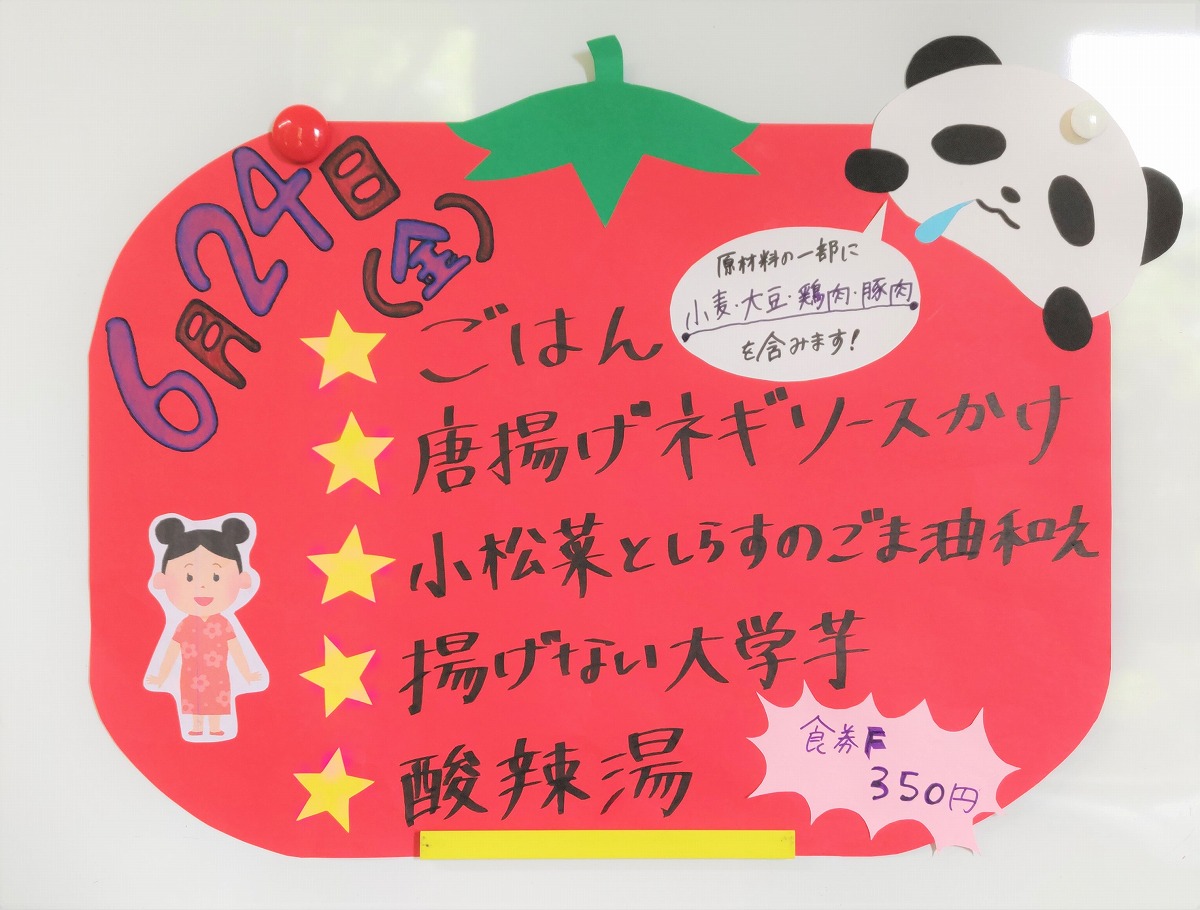 6月24日(金)
原材料の一部に
小麦・大豆・鶏肉・豚肉
を含みます!
ごはん
唐揚げネギソースかけ
小松菜としらすのごま油和え
揚げない大学芋
酸辣湯
食券F
350円